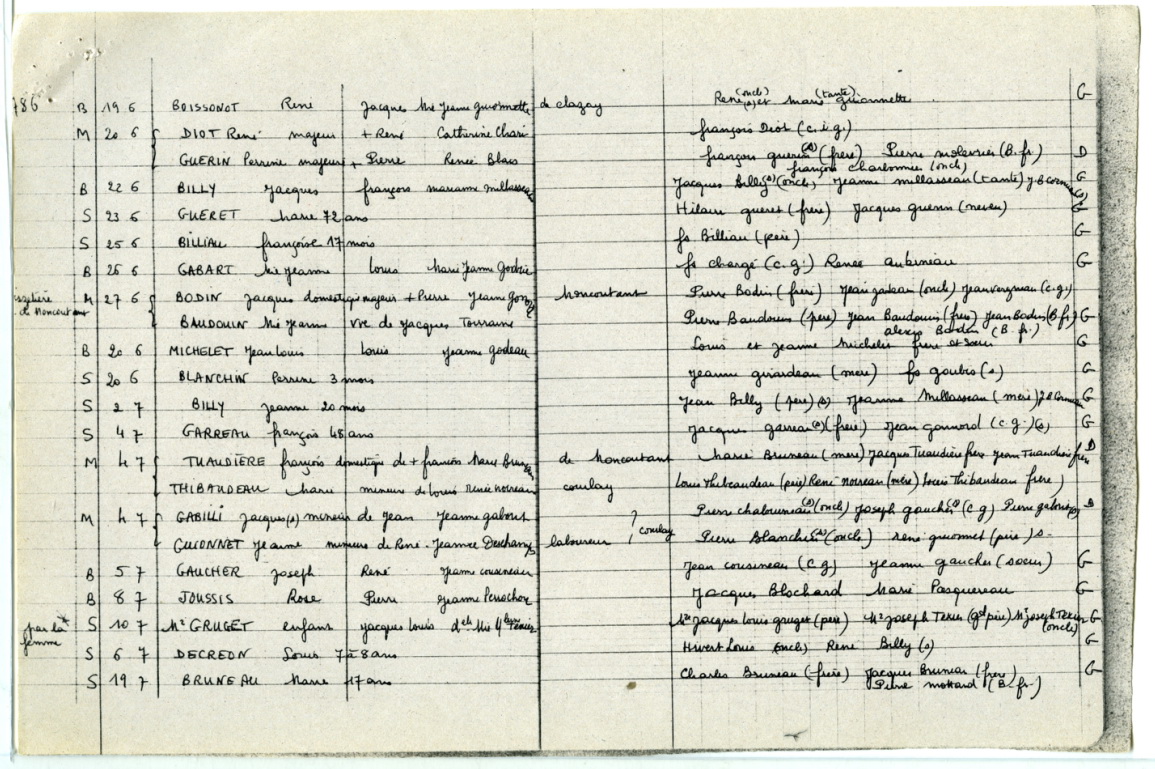 786 B 19 6 BOISSONOT René Jacques Mie Jeanne guionnette de clazay René (oncle) (s) et Marie (tante) guionnette . G
M 20 6 { DIOT René majeur + René Catherine Chari françois Diot (c.i.g.)
GUERIN Perrine majeure + Pierre Renée Blais françois guerin (s) (frère) Pierre molevrier (B.fr.) D
françois charbonnier (oncle)
B 22 6 BILLY Jacques françois marianne millasseau Jacques Billy (s) (oncle) Jeanne millasseau (tante) J B (s) G
S 23 6 GUERET Marie 72 ans Hilaire gueret (frère) Jacques guerin (neveu) G
S 25 6 BILLIAU françoise 17 mois fs Billiau (père) G
B 26 6 GABART Mie Jeanne Louis Marie Jeanne fs chargé (c.g.) Renée aubineau G
de Moncoutant M 27 6 { BODIN Jacques domestique majeur + Pierre Jeanne Moncoutant Pierre Bodin (frère) Jean (oncle) Jean (c.g.)
BAUDOUIN Mie Jeanne Vve de Jacques Touraine Pierre Baudouin (père) Jean Baudouin (frère) Jean Bodin (B.fr) G
alexis Bardin (B.fr.)
B 20 6 MICHELET Jean Louis Louis Jeanne godeau Louis et Jeanne Michelet frère et soeur G
S 20 6 BLANCHIN Perrine 3 mois Jeanne girardeau (mère) fs goubis (s.) G
S 2 7 BILLY Jeanne 20 mois Jean Billy (père) (s) Jeanne Millasseau (mère) G
S 4 7 GARREAU françois 48 ans Jacques garreau (s) (frère) Jean (c.g.) (s) G
M 4 7 { TUAUDIÈRE françois domestique de + francois Marie Bruneau de Moncoutant Marie Bruneau (mère) Jacques Tuaudière frère Jean Tuaudière frère D
THIBAUDEAU Marie mineure de Louis Renée noireau coulay Louis Thibeaudeau (père) René noireau (mère) Louis Thibaudeau frère)
M 4 7 { GABILLI Jacques (s) mineur de Jean Jeanne ? Pierre (s) (oncle) Joseph gaucher (s) (c g) Pierre (s) D
GUIONNET Jeanne mineure de René - Jeanne Deschamps laboureur } coulay Pierre Blanchin (s) (oncle) rené guionnet (père) s.
B 5 7 GAUCHER Joseph René Jeanne cousineau Jean cousineau (c g) Jeanne gaucher (soeur) G
B 8 7 JOUSSIS Rose Pierre Jeanne Jacques Blochard Marie Pasquereau G
par la femme * S 10 7 Mr GRUGET enfant Jacques Louis Mie Texier Mr Jacques Louis gruget (père) Mr Joseph Texier (gd père) Mr Joseph Texier G
(oncle)
S 6 7 DECREON Louis 7 à 8 ans Hivert Louis (oncle) René Billy (s) G
S 19 7 BRUNEAU Marie 17 ans Charles Bruneau (frère) Jacques Bruneau (frère) G
Pierre mottard (B-fr.)